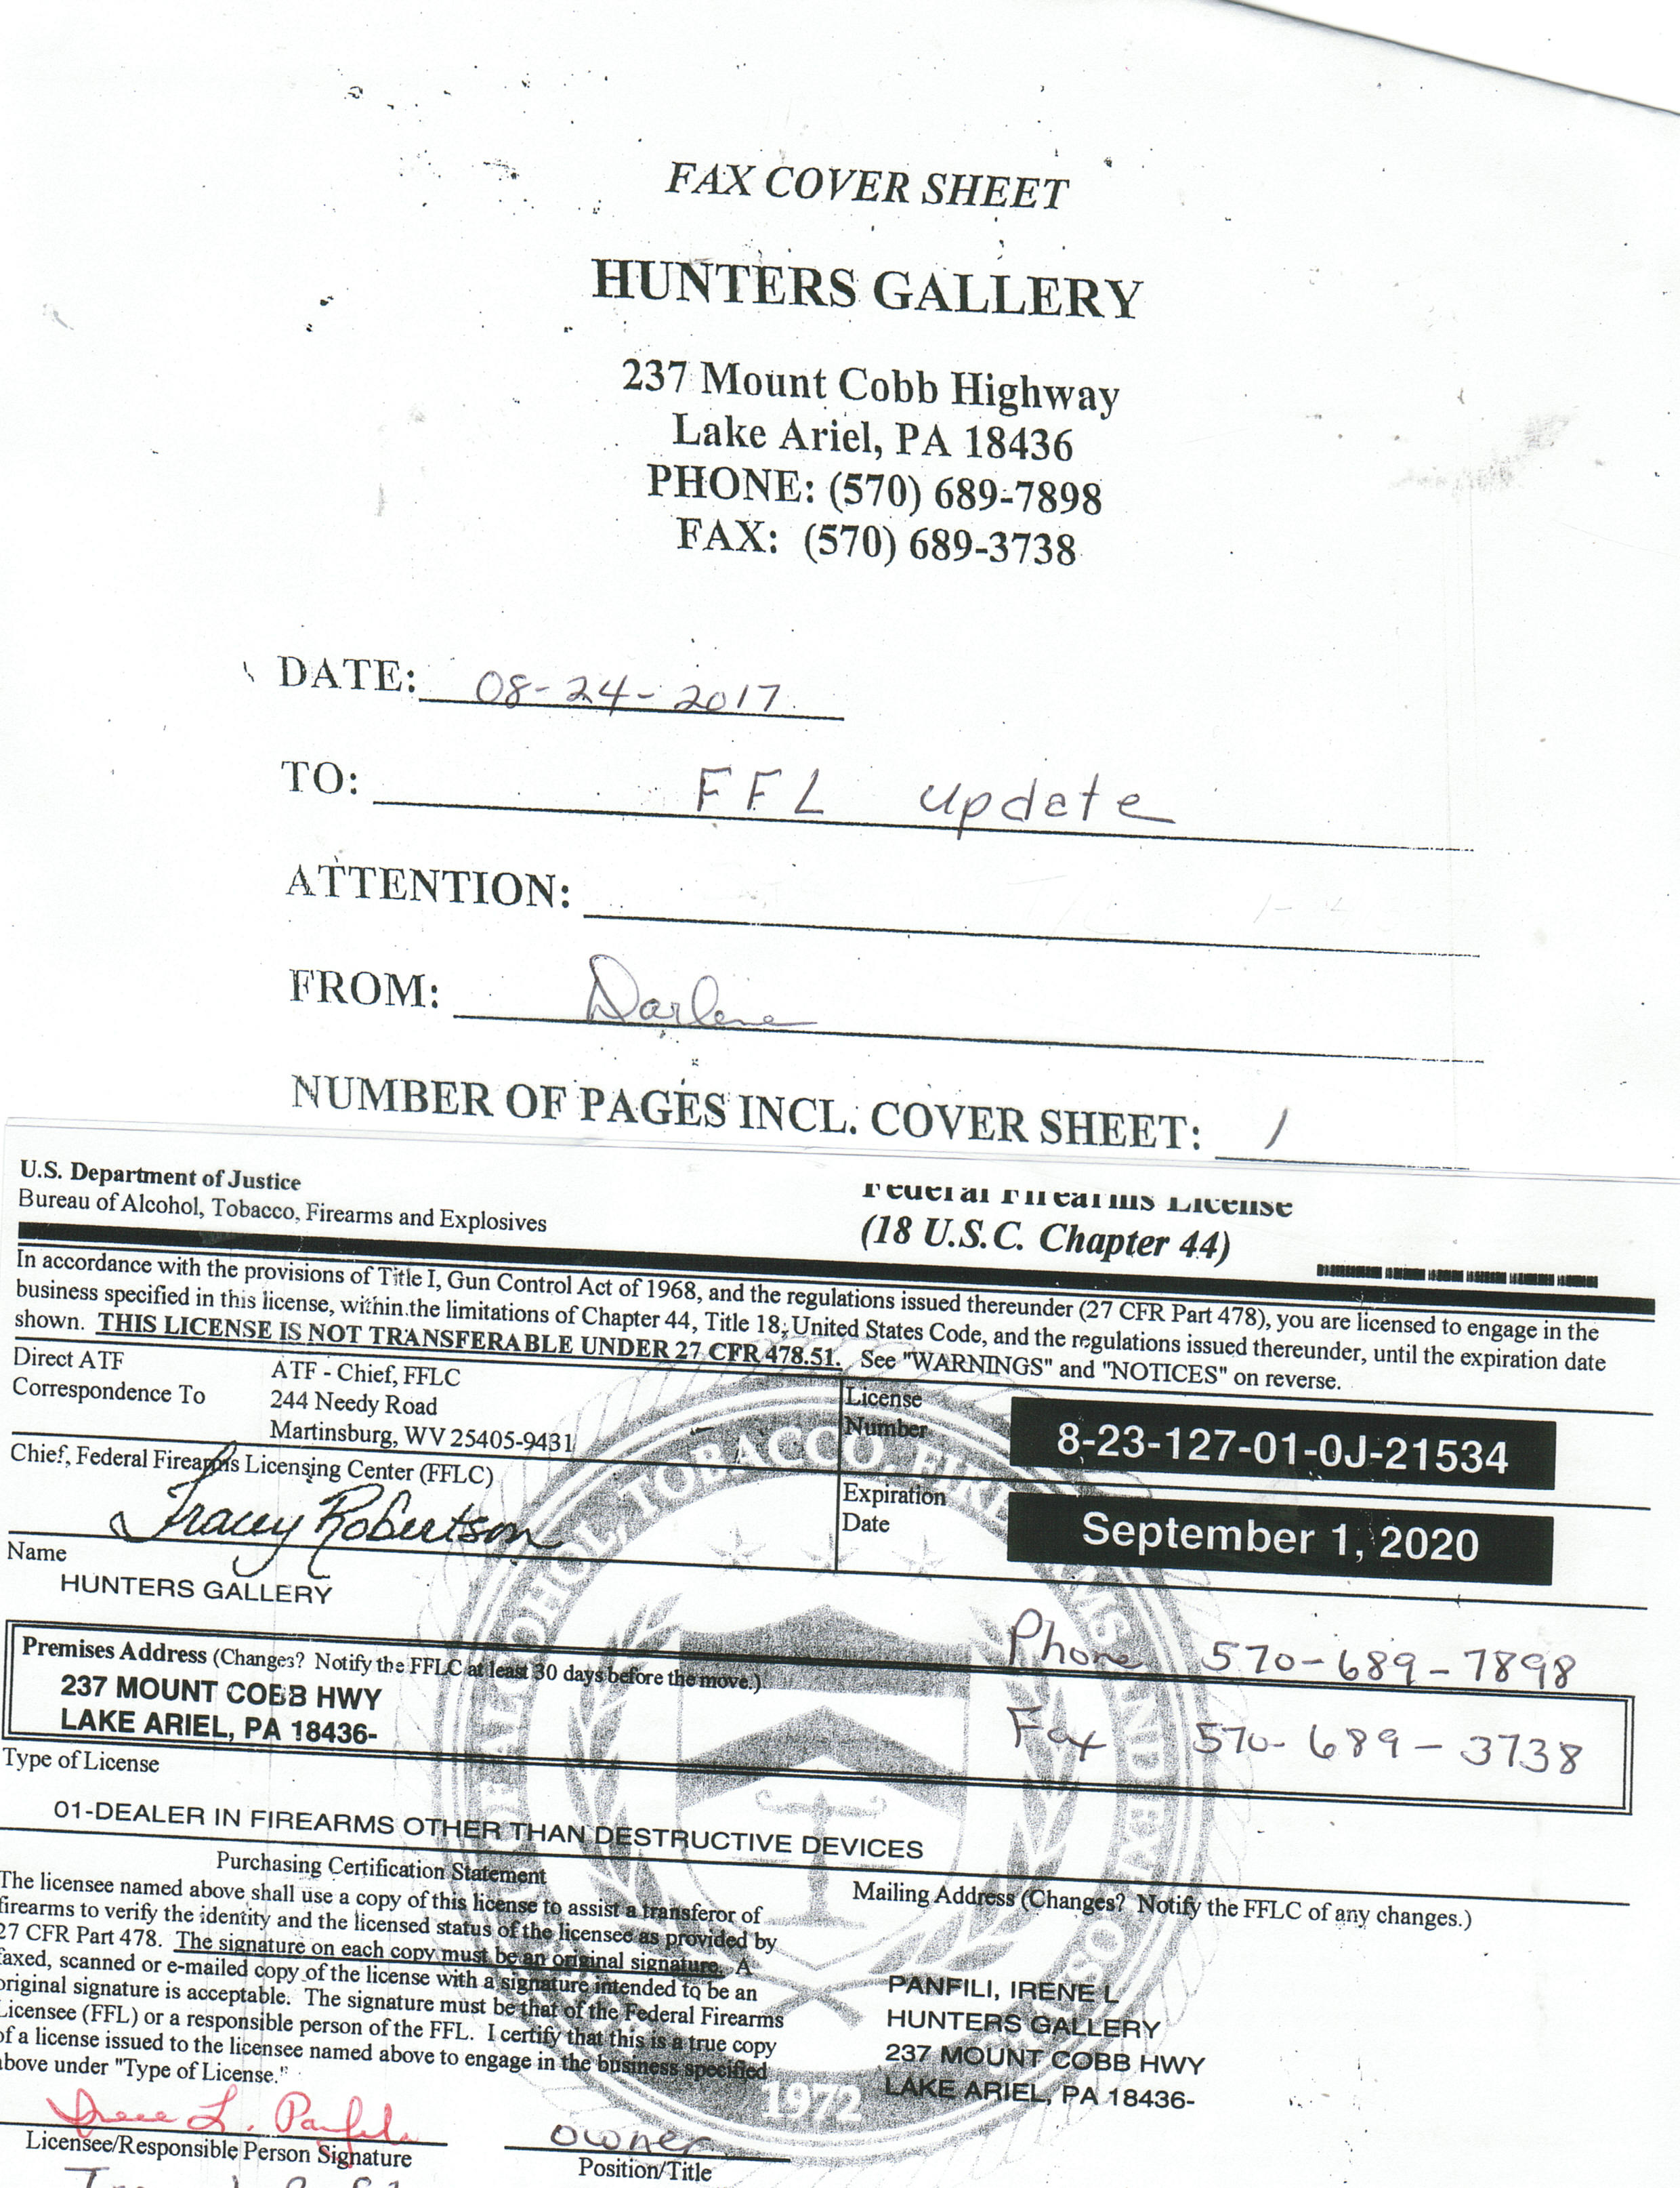 FAX COVER SHEET
HUNTERS GALLERY
237 Mount Cobb Highway
Lake Ariel, PA 18436
PHONE: (570) 689-7898
FAX: (570) 689-3738
DATE: 08-24-2017
TO: FFL update
ATTENTION:
FROM: Darlene
NUMBER OF PAGES INCL. COVER SHEET: 1
U.S. Department of Justice
Bureau of Alcohol, Tobacco, Firearms and Explosives
Federal Firearms License
(18 U.S.C. Chapter 44)
In accordance with the provisions of Title I, Gun Control Act of 1968, and the regulations issued thereunder (27 CFR Part 478), you are licensed to engage in the
business specified in this license, within the limitations of Chapter 44, Title 18, United States Code, and the regulations issued thereunder, until the expiration date
shown. THIS LICENSE IS NOT TRANSFERABLE UNDER 27 CFR 478.51. See "WARNINGS" and "NOTICES" on reverse.
Direct ATF
Correspondence To
ATF - Chief, FFLC
244 Needy Road
Martinsburg, WV 25405-9431
License
Number
8-23-127-01-0J-21534
Chief, Federal Firearms Licensing Center (FFLC)
Tracey Robertson
Expiration
Date
September 1, 2020
Name
HUNTERS GALLERY
Premises Address (Changes? Notify the FFLC at least 30 days before the move.)
237 MOUNT COBB HWY
LAKE ARIEL, PA 18436-
Phone 570-689-7898
Fax 570-689-3738
Type of License
01-DEALER IN FIREARMS OTHER THAN DESTRUCTIVE DEVICES
Purchasing Certification Statement
The licensee named above shall use a copy of this license to assist a transferor of
firearms to verify the identity and the licensed status of the licensee as provided by
27 CFR Part 478. The signature on each copy must be an original signature. A
faxed, scanned or e-mailed copy of the license with a signature intended to be an
original signature is acceptable. The signature must be that of the Federal Firearms
Licensee (FFL) or a responsible person of the FFL. I certify that this is a true copy
of a license issued to the licensee named above to engage in the business specified
above under "Type of License."
Mailing Address (Changes? Notify the FFLC of any changes.)
PANFILI, IRENE L
HUNTERS GALLERY
237 MOUNT COBB HWY
LAKE ARIEL, PA 18436-
1972
Irene L. Panfili
Licensee/Responsible Person Signature
owner
Position/Title